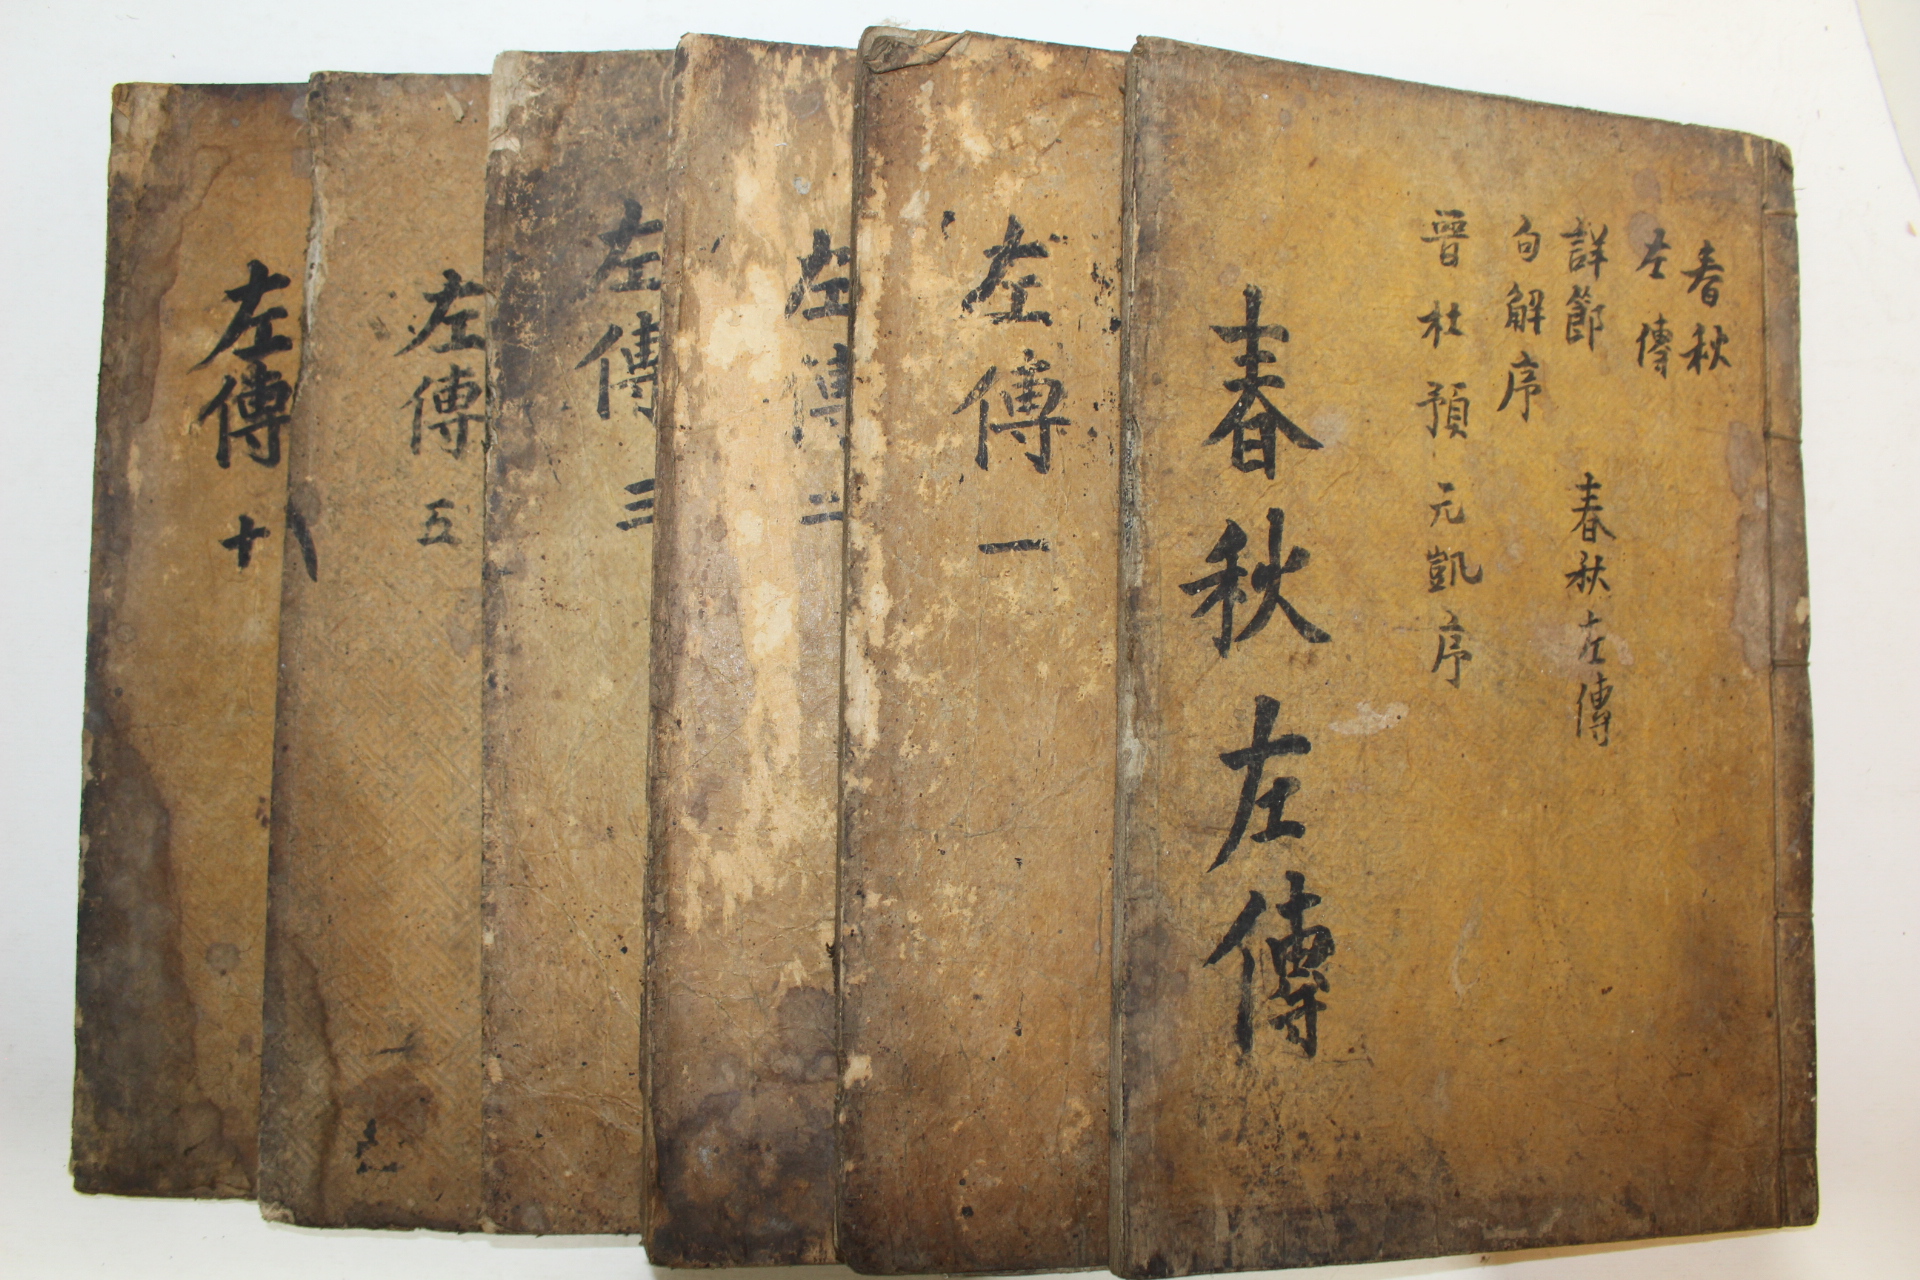 春秋
左傳
詳節 春秋左傳
句解序
晉杜預元凱序
春秋左傳
左傳 一
左傳 二
左傳 三
左傳 五
左傳 十